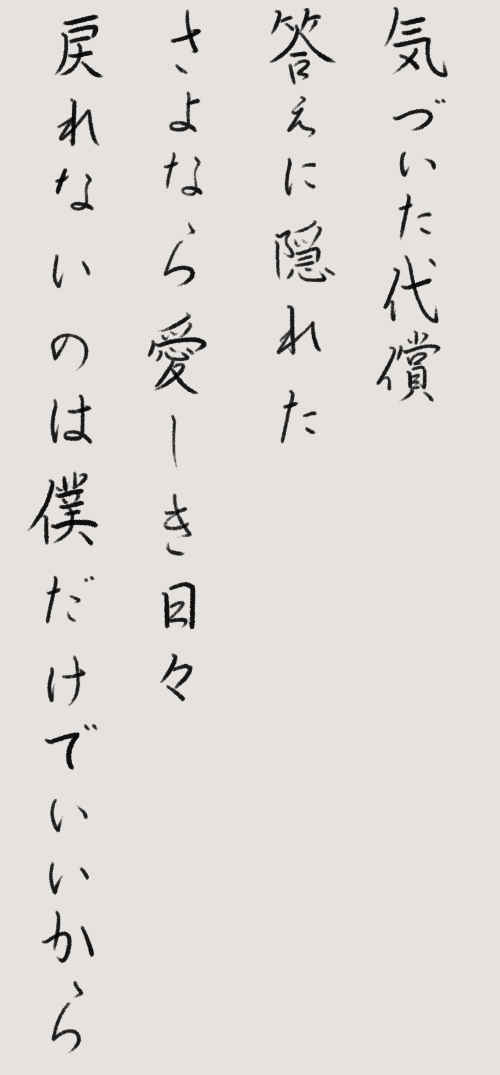 気づいた代償
答えに隠れた
さよなら愛しき日々
戻れないのは僕だけでいいから